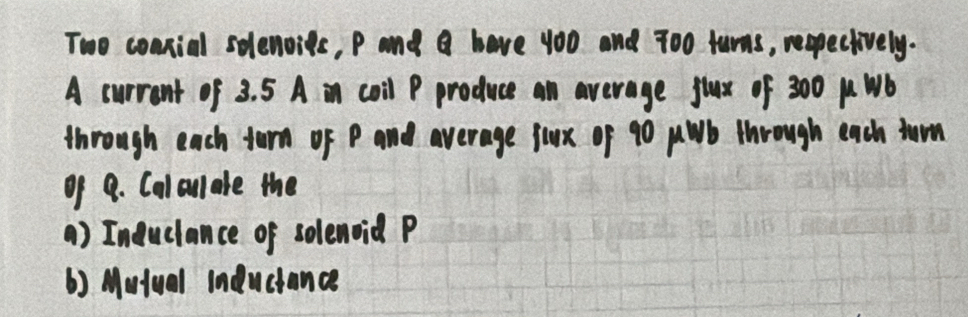 Two coaxial solenoids, P and Q have 400 and 700 turns, respectively.
A current of 3.5 A in coil P produce an average flux of 300 μ Wb
through each turn of P and average flux of 90 μWb through each turn
of Q. Calculate the
a) Inductance of solenoid P
b) Mutual inductance